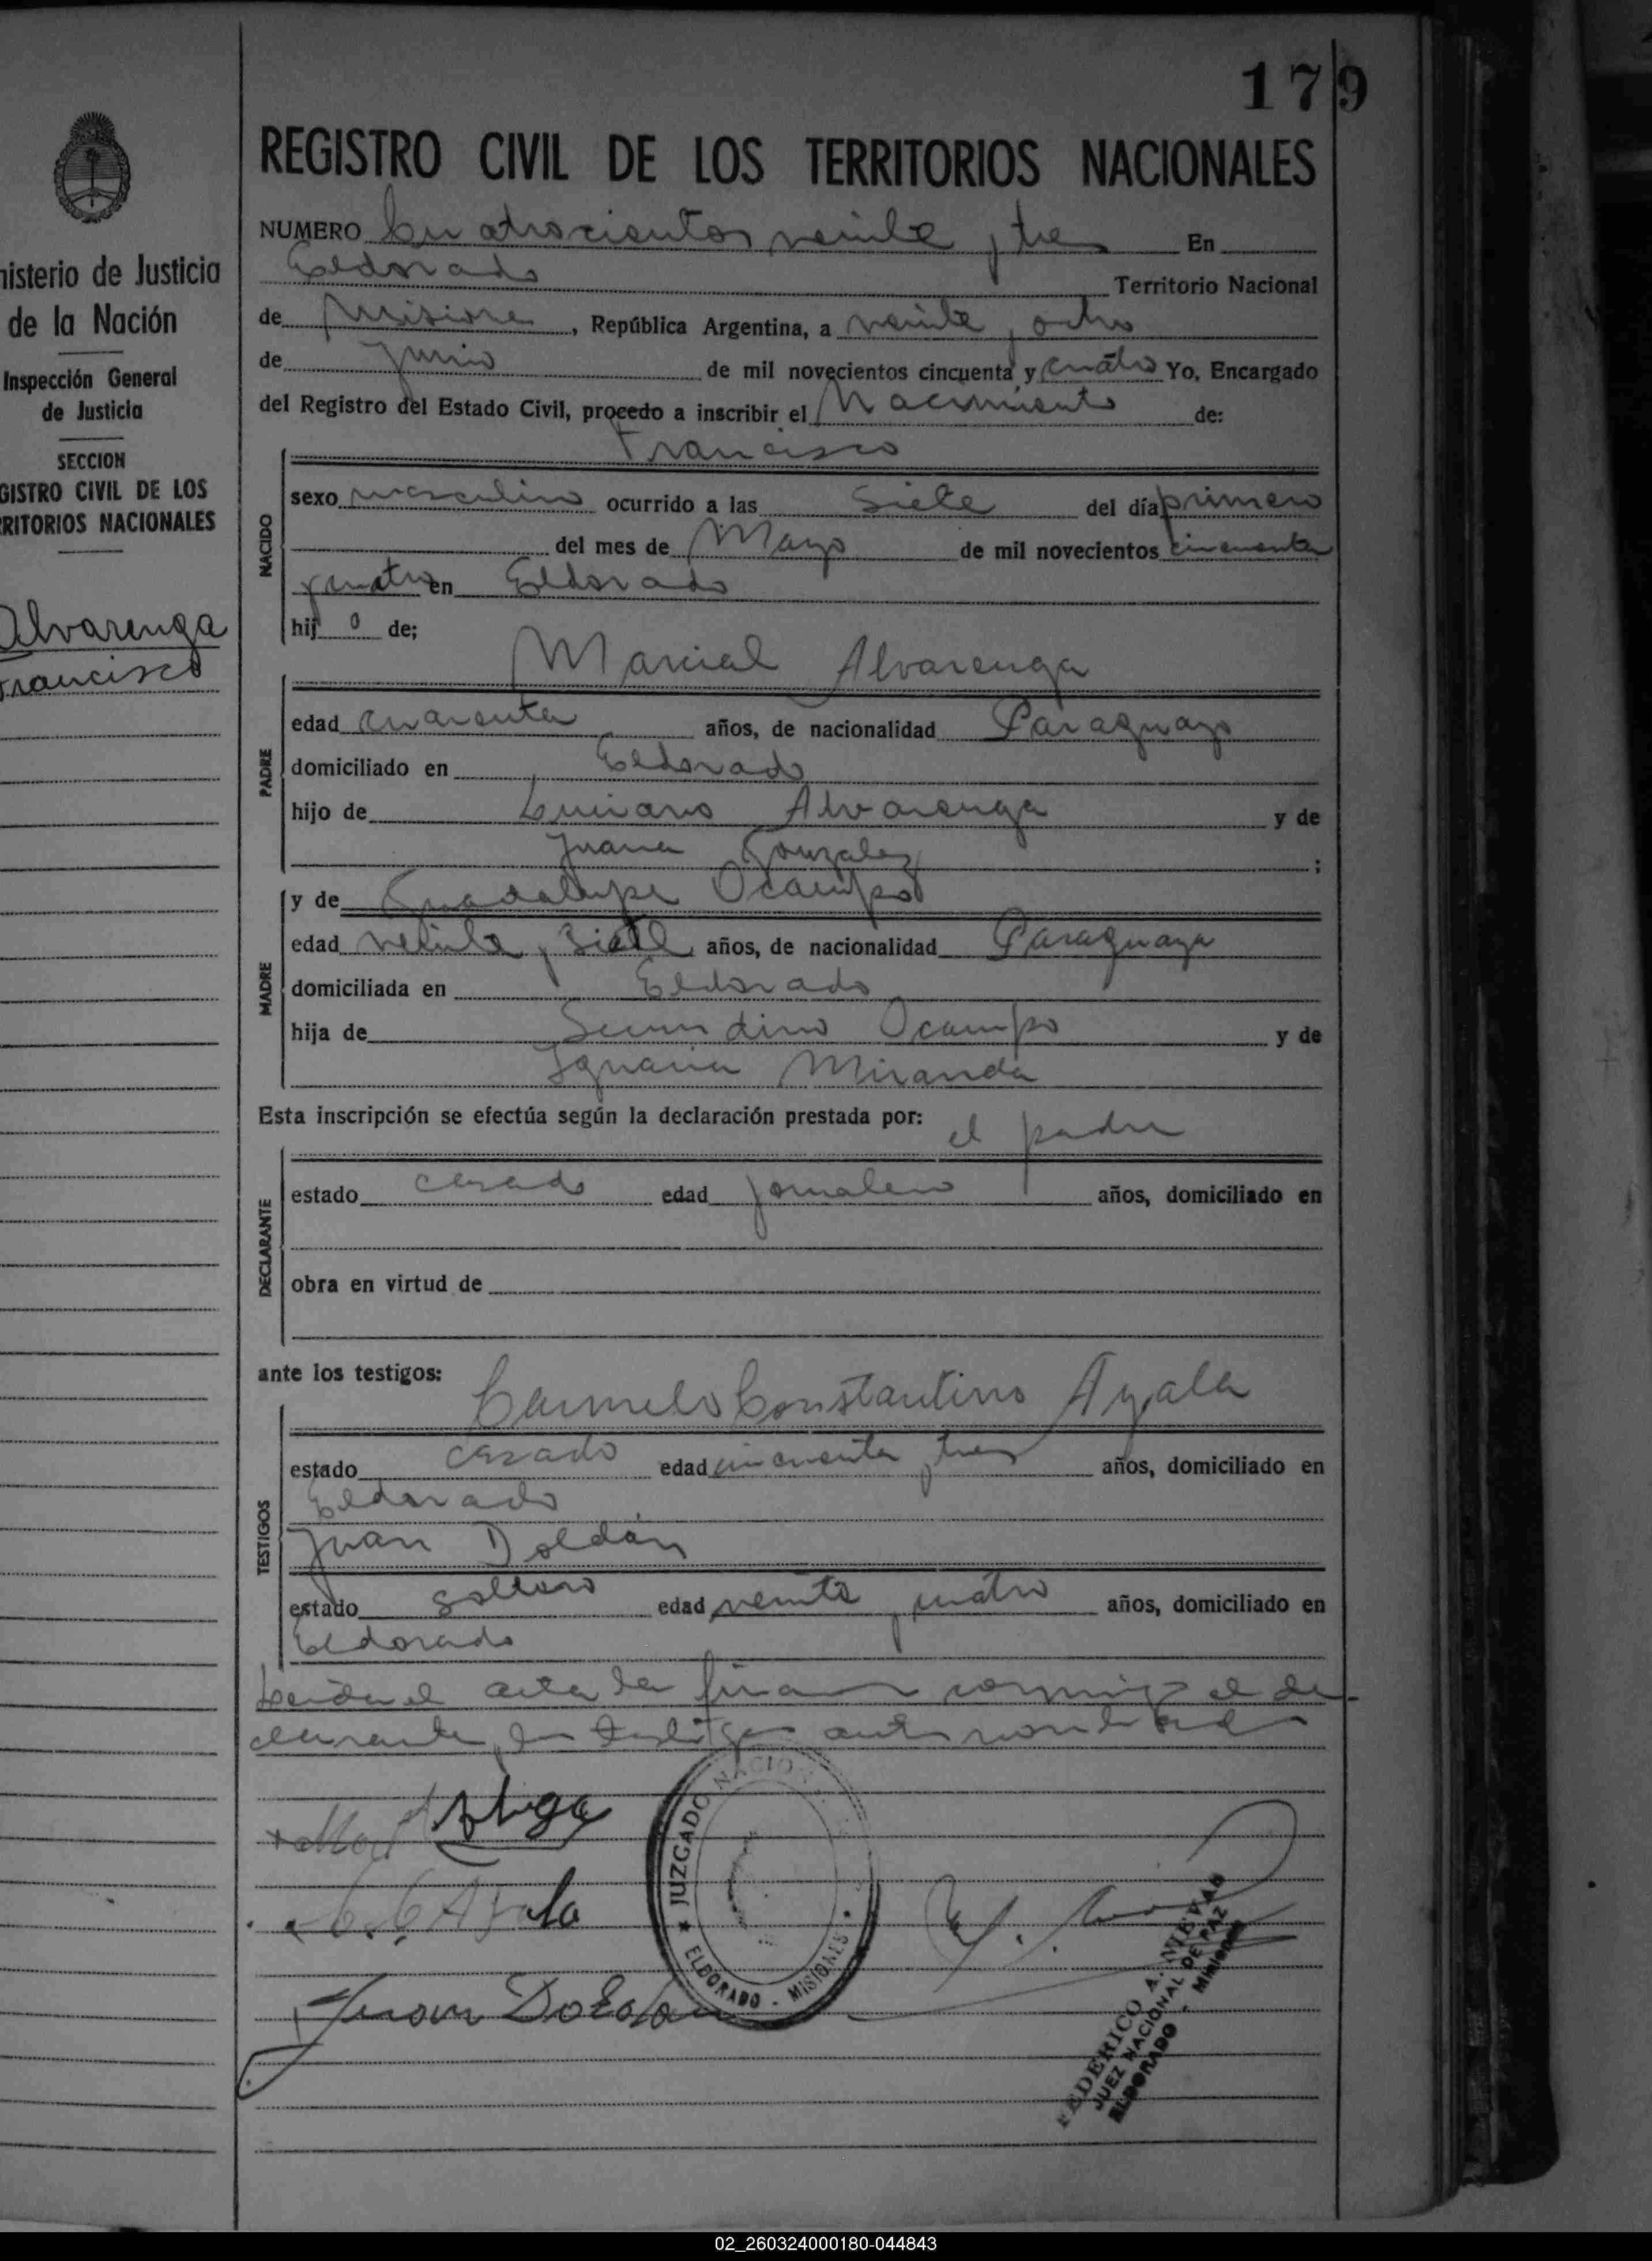 179
nisterio de Justicia
de la Nación
Inspección General
de Justicia
SECCION
GISTRO CIVIL DE LOS
RRITORIOS NACIONALES
Alvarenga
Francisco
REGISTRO CIVIL DE LOS TERRITORIOS NACIONALES
NUMERO Cuatrocientos veinte y tres En
Eldorado Territorio Nacional
de Misiones, República Argentina, a veinte y ocho
de Junio de mil novecientos cincuenta y cuatro Yo, Encargado
del Registro del Estado Civil, procedo a inscribir el Nacimiento de:
Francisco
NACIDO
sexo masculino ocurrido a las siete del día primero
del mes de Mayo de mil novecientos cincuenta
y cuatro en Eldorado
hijo de;
Marcial Alvarenga
PADRE
edad cuarenta años, de nacionalidad Paraguayo
domiciliado en Eldorado
hijo de Luciano Alvarenga y de
Juana Gonzalez ;
y de Guadalupe Ocampo
MADRE
edad veinte y siete años, de nacionalidad Paraguaya
domiciliada en Eldorado
hija de Secundino Ocampo y de
Ignacia Miranda
Esta inscripción se efectúa según la declaración prestada por: el padre
DECLARANTE
estado casado edad jornalero años, domiciliado en
obra en virtud de
ante los testigos: Carmelo Constantino Ayala
TESTIGOS
estado casado edad cincuenta y tres años, domiciliado en
Eldorado
Juan Doldán
estado soltero edad veinte y cuatro años, domiciliado en
Eldorado
Leida el acta la firman conmigo el de-
clarante y los testigos antes nombrados
C. C. Ayala
Juan Doldan
JUZGADO NACIO
ELDORADO - MISIONES
FEDERICO A. NIEVAS
JUEZ NACIONAL DE PAZ
ELDORADO - MISIONES
02_260324000180-044843